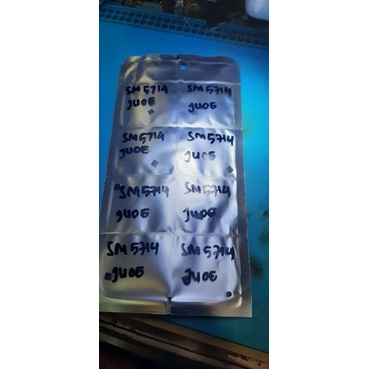 SM5714
JUOE
SM5714
JUOE
SM5714
JUOE
SM5714
JUOE
SM5714
JUOE
SM5714
JUOE
SM5714
JUOE
SM5714
JUOE